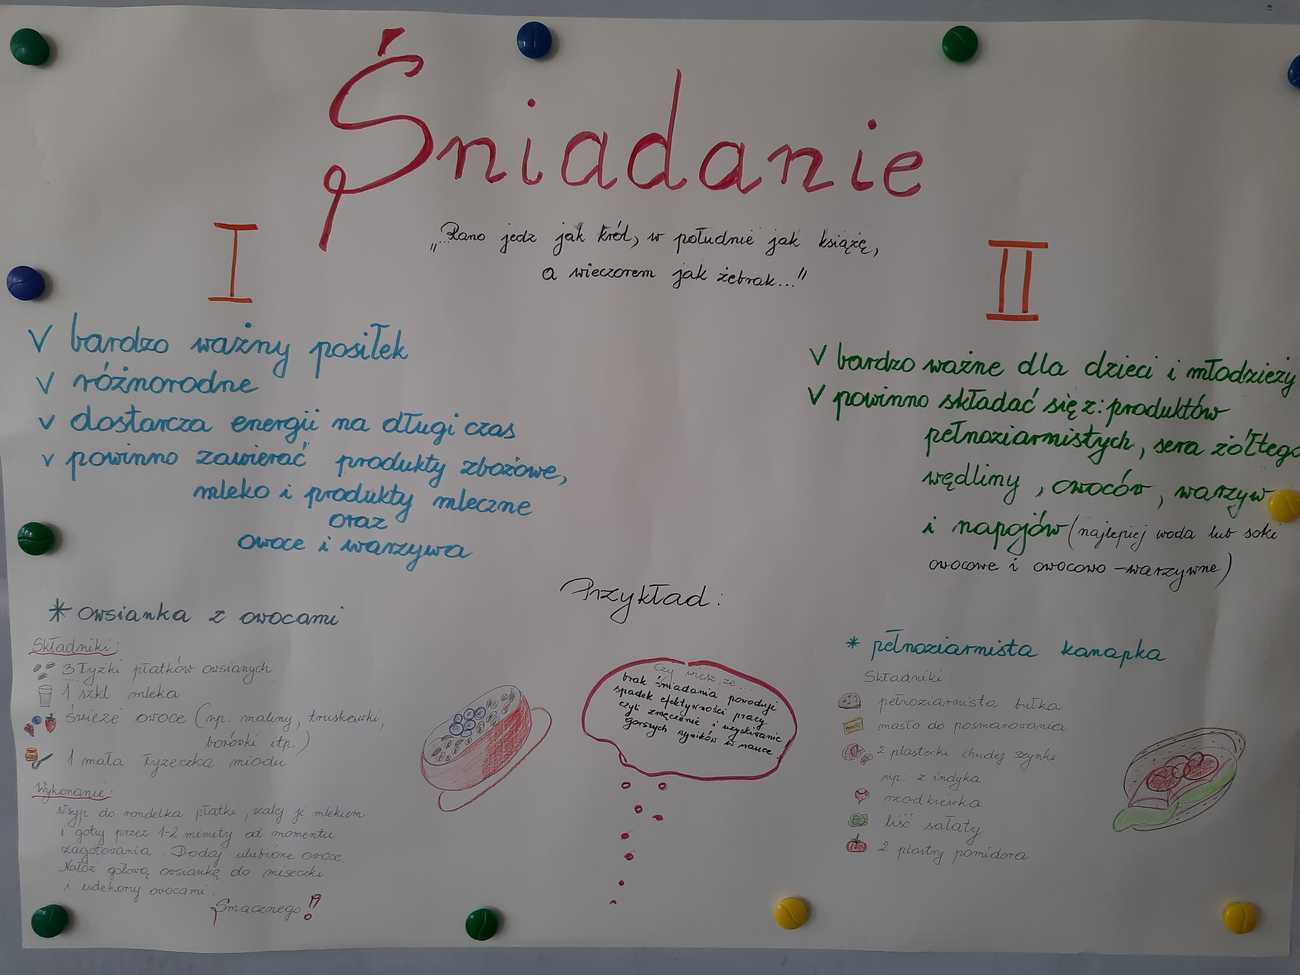 Śniadanie
„Rano jedz jak król, w południe jak książę,
a wieczorem jak żebrak..."
I
V bardzo ważny posiłek
V różnorodne
V dostarcza energii na długi czas
V powinno zawierać produkty zbożowe,
mleko i produkty mleczne
oraz
owoce i warzywa
* owsianka z owocami
Składniki:
3 łyżki płatków owsianych
1 szkl mleka
świeże owoce (np. maliny, truskawki,
borówki itp.)
1 mała łyżeczka miodu
Wykonanie:
Wsyp do rondelka płatki, zalej je mlekiem
i gotuj przez 1-2 minuty od momentu
zagotowania. Dodaj ulubione owoce.
Nałóż gotową owsiankę do miseczki
i udekoruj owocami.
Smacznego!
Przykład:
Czy wiesz, że...
brak śniadania powoduje
spadek efektywności pracy
czyli zmęczenie i uzyskiwanie
gorszych wyników w nauce
II
V bardzo ważne dla dzieci i młodzieży
V powinno składać się z: produktów
pełnoziarnistych, sera żółtego
wędliny, owoców, warzyw
i napojów (najlepiej woda lub soki
owocowe i owocowo-warzywne)
* pełnoziarnista kanapka
Składniki
pełnoziarnista bułka
masło do posmarowania
2 plasterki chudej szynki
np. z indyka
rzodkiewka
liść sałaty
2 plastry pomidora